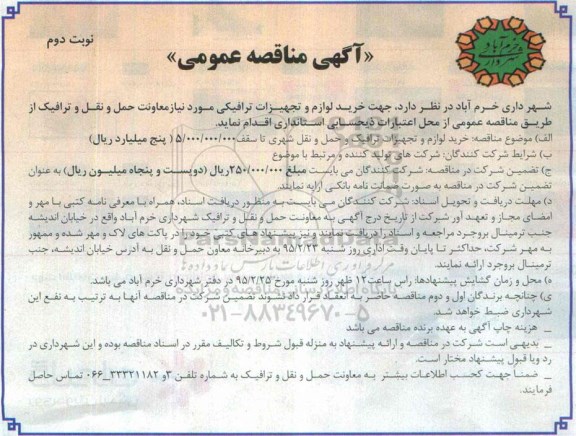 نوبت دوم
خرم آباد
شهرداری
«آگهی مناقصه عمومی»
شهر داری خرم آباد در نظر دارد، جهت خرید لوازم و تجهیزات ترافیکی مورد نیاز معاونت حمل و نقل و ترافیک از
طریق مناقصه عمومی از محل اعتبارات ذیحسابی استانداری اقدام نماید.
الف) موضوع مناقصه: خرید لوازم و تجهیزات ترافیک و حمل و نقل شهری تا سقف ۵/۰۰۰/۰۰۰/۰۰۰ ( پنج میلیارد ریال)
ب) شرایط شرکت کنندگان: شرکت های تولید کننده و مرتبط با موضوع
ج) تضمین شرکت در مناقصه: شرکت کنندگان می بایست مبلغ ۲۵۰/۰۰۰/۰۰۰ریال (دویست و پنجاه میلیون ریال) به عنوان
تضمین شرکت در مناقصه به صورت ضمانت نامه بانکی ارایه نمایند.
د) مهلت دریافت و تحویل اسناد: شرکت کنندگان می بایست به منظور دریافت اسناد، همراه با معرفی نامه کتبی با مهر و
امضای مجاز و تعهد آور شرکت از تاریخ درج آگهی به معاونت حمل و نقل و ترافیک شهرداری خرم آباد واقع در خیابان اندیشه
جنب ترمینال بروجرد مراجعه و اسناد را دریافت نمایند و نیز پیشنهاد های کتبی خود را در پاکت های لاک و مهر شده و ممهور
به مهر شرکت، حداکثر تا پایان وقت اداری روز شنبه ۹۵/۲/۲۳ به دبیرخانه معاون حمل و نقل به آدرس خیابان اندیشه، جنب
ترمینال بروجرد ارائه نمایند.
ه) محل و زمان گشایش پیشنهادها: راس ساعت ۱۲ ظهر روز شنبه مورخ ۹۵/۲/۲۵ در دفتر شهرداری خرم آباد می باشد.
ی) چنانچه برندگان اول و دوم مناقصه حاضر به انعقاد قرار داد نشوند تضمین شرکت در مناقصه آنها به ترتیب به نفع این
شهرداری ضبط خواهد شد.
_ هزینه چاپ آگهی به عهده برنده مناقصه می باشد
_ بدیهی است شرکت در مناقصه و ارائه پیشنهاد به منزله قبول شروط و تکالیف مقرر در اسناد مناقصه بوده و این شهرداری در
رد ویا قبول پیشنهاد مختار است.
_ ضمنا جهت کسب اطلاعات بیشتر به معاونت حمل و نقل و ترافیک به شماره تلفن ۳و ۳۳۳۲۱۱۸۲_۰۶۶ تماس حاصل
فرمایند.
۰۲۱-۸۸۳۴۹۶۷۰-۵